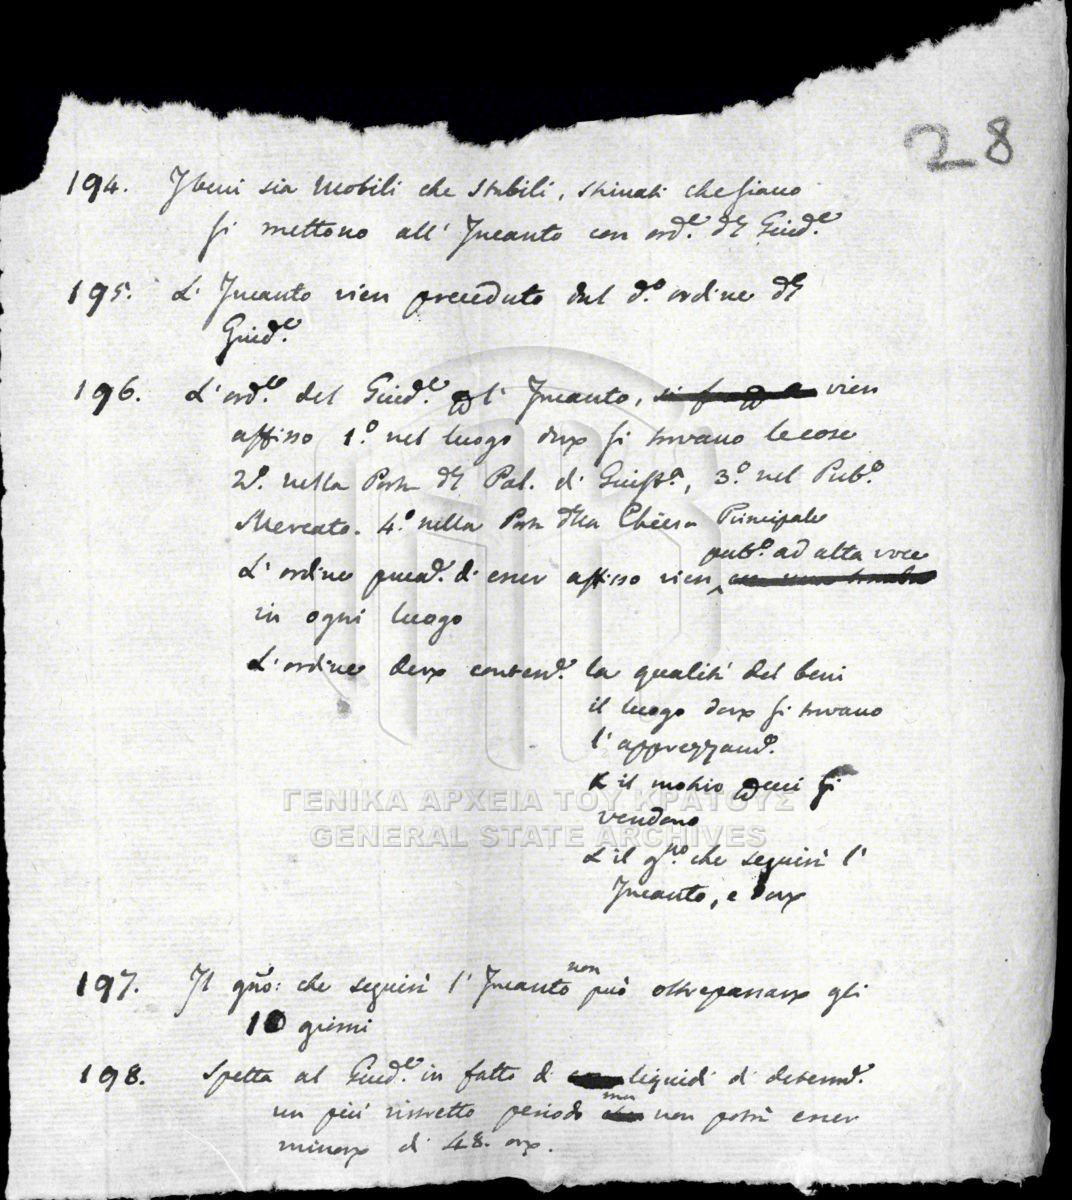 28
194. I beni sia mobili che stabili, stimati che siano
si mettono all' Incanto con ord.e del Giud.e
195. L' Incanto vien preceduto dal d.o ordine del
Giud.e
196. L'ord.e del Giud.e per l' Incanto, vien
affisso 1.o nel luogo dove si trovano le cose
2.o nella Porta del Pal. di Giust.a, 3.o nel Pub.o
Mercato. 4.o nella Porta della Chiesa Principale
pub.o ad alta voce
L' ordine di esser affisso vien
in ogni luogo
L'ordine deve conten.e la qualità del beni
il luogo dove si trovano
l' apprezzam.o
& il motivo per cui si
vendono
& il g.no che seguirà l'
Incanto, e dove
non
197. Il gño: che seguirà l' Incanto può oltrepassare gli
10 giorni
198. Spetta al Giud.e in fatto di liquidi di determ.e
ma
un più ristretto periodo non potrà esser
minore di 48. ore.
ΓΕΝΙΚΑ ΑΡΧΕΙΑ ΤΟΥ ΚΡΑΤΟΥΣ
GENERAL STATE ARCHIVES